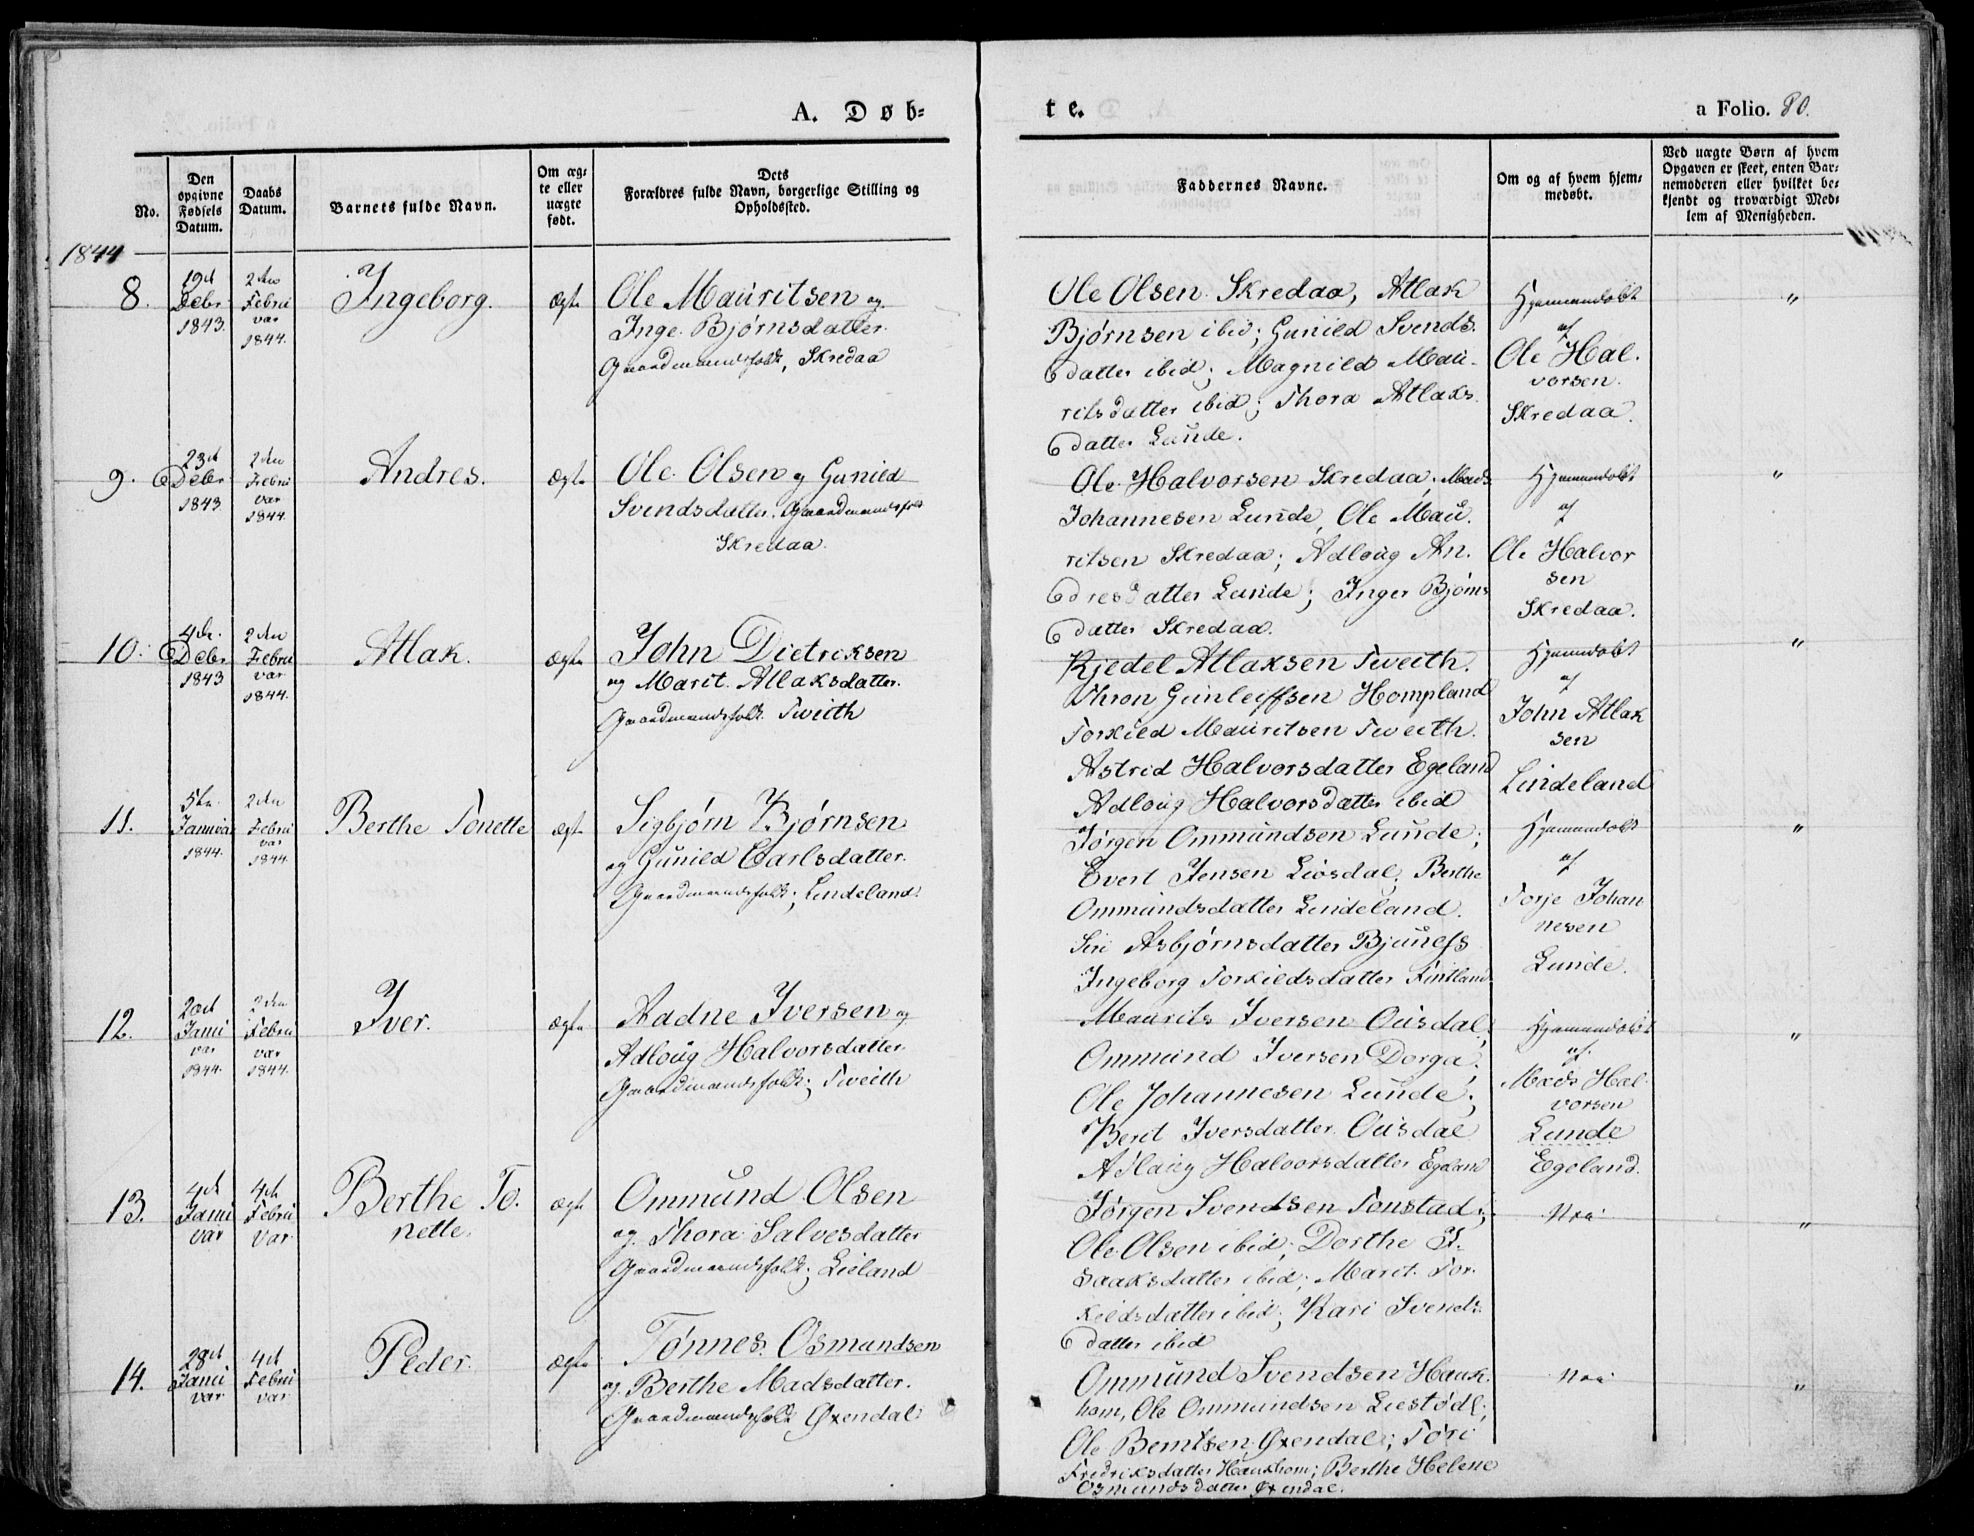 A. Døb-
te.
a Folio. 80.
No.
Den opgivne Fødsels Datum.
Daabs Datum.
Barnets fulde Navn.
Om ægte eller uægte født.
Dets Forældres fulde Navn, borgerlige Stilling og Opholdssted.
Faddernes Navne.
Om og af hvem hjemmedøbt.
Ved uægte Børn af hvem Opgaven er skeet, enten Barnemoderen eller hvilket bekjendt og troværdigt Medlem af Menigheden.
1844
8.
19de
Debr
1843.
2den
Febru
var
1844.
Ingeborg.
Ægte
Ole Mauritsen og
Inge Bjørnsdatter.
Gaardmandsfolk, Skredaa
Ole Olsen Skredaa, Atlak
Bjørnsen ibid; Gunild Svends-
datter ibid; Magnild Mau-
ritsdatter ibid; Thora Atlaks
datter Lunde.
Hjemmedøbt
af
Ole Hal-
vorsen
Skredaa.
"
9.
23de
Debr
1843
2den
Febru
var
1844.
Andres.
Ægte
Ole Olsen og Gunild
Svendsdatter. Gaardmandsfolk
Skredaa.
Ole Halvorsen Skredaa; Mads
Johannesen Lunde, Ole Mau-
ritsen Skredaa; Adloug An-
dresdatter Lunde; Inger Bjørns
datter Skredaa.
Hjemmedøbt
af
Ole Halvor
sen
Skredaa.
"
10.
4de
Debr
1843
2den
Februi
var
1844.
Atlak.
Ægte
John Dietriksen
og Marit Atlaksdatter.
Gaardmandsfolk Tveith
Kjedel Atlaksen Tveith.
Thron Gunleiffsen Hompland
Torkild Mauritsen Tveith.
Astrid Halvorsdatter Egeland
Adloug Halvorsdatter ibid
Hjemmedøbt
af
John Atlak
sen
Lindeland
"
11.
5te
Janua
1844.
2den
Februi
var
1844.
Berthe Tonette
Ægte
Sigbjørn Bjørnsen
og Gunild Carlsdatter.
Gaardmandsfolk; Lindeland.
Jørgen Ommundsen Lunde;
Evert Jensen Liosdal; Berthe
Ommundsdatter Lindeland.
Siri Asbjørnsdatter Bjunefs
Ingeborg Torkildsdatter Fintland
Hjemmedøbt
af
Torje Johan
nesen
Lunde.
"
12.
20de
Janu
var
1844.
2den
Februi
var
1844.
Iver.
Ægte
Aadne Iversen og
Adloug Halvorsdatter
Gaardmandsfolk; Tveith
Maurits Iversen Ousdal;
Ommund Iversen Dorga;
Ole Johannesen Lunde;
Berit Iversdatter Ousdal
Adlaug Halvorsdatter Egeland
Hjemmedøbt
af
Mads Hal-
vorsen
Lunde
Egeland.
"
13.
4de
Janu
var
4de
Febru
var
Berthe To-
nette.
Ægte
Ommund Olsen
og Thora Salvesdatter
Gaardmandsfolk; Lieland
Jørgen Svendsen Tonstad;
Ole Olsen ibid; Dorthe I-
saaksdatter ibid; Marit Tor-
kildsdatter ibid; Kari Svends-
datter ibid
Nei
"
14.
28de
Janu
var
4de
Februi
var
Peder.
Ægte
Tønnes Osmundsen
og Berthe Madsdatter.
Gaardmandsfolk Øxendal
Ommund Svendsen Hauk-
hom, Ole Ommundsen Liestødl;
Ole Berntsen Øxendal; Tøri
Fredriksdatter Haukhom; Berthe Helene
Osmundsdatter Øxendal.
Nei
"